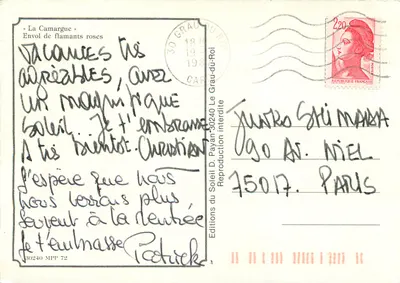 « La Camargue »
Envol de flamants roses
VACANCES TRÈS
AGRÉABLES, AVEC
UN MAGNIFIQUE
SOLEIL... Je t'embrasse
A très bientôt. CHRISTIAN
J'espère que nous
nous verrons plus
souvent à la rentrée
Je t'embrasse Patrick
30240 MPP 72
Editions du Soleil D. Payan 30240 Le Grau-du-Roi
Reproduction interdite
30 GRAU
2,20
JUNKO SHIMADA
90 AV. NIEL
75017. PARIS